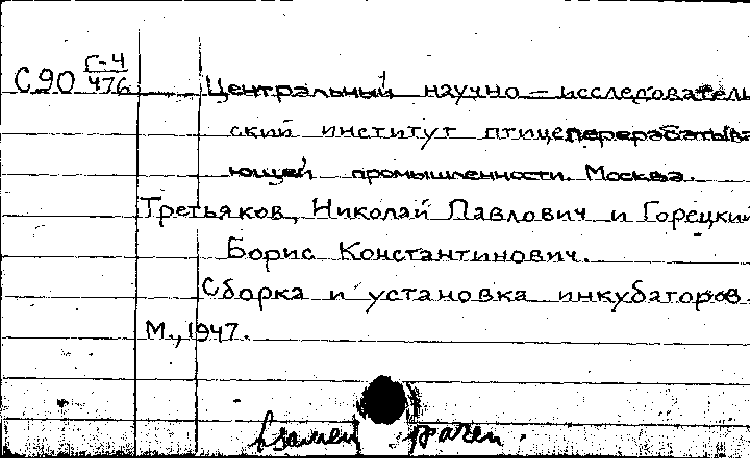 С90 Г-4/476
Центральный научно-исследователь
ский институт птицеперерабатыва
ющей промышленности. Москва.
Третьяков, Николай Павлович и Горецкий
Борис Константинович.
Сборка и установка инкубаторов.
М., 1947.
взамен